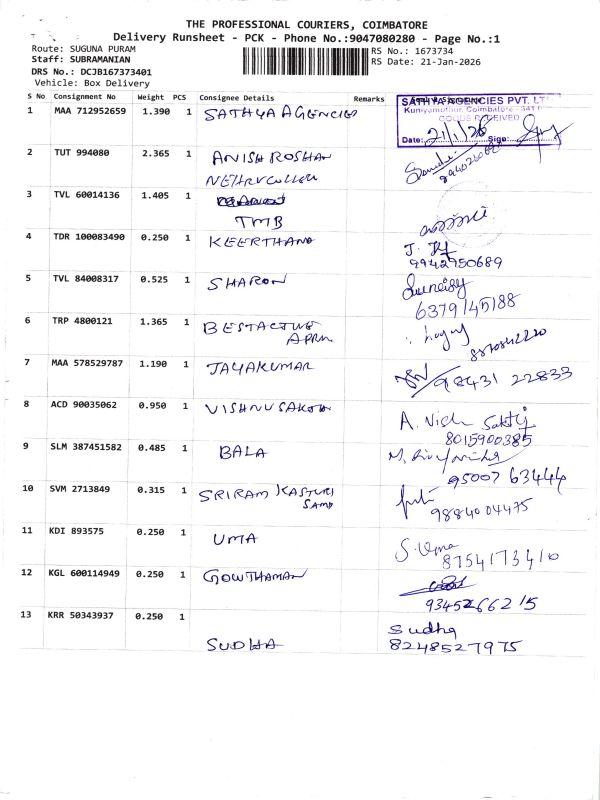 THE PROFESSIONAL COURIERS, COIMBATORE
Delivery Runsheet - PCK - Phone No.:9047080280 - Page No.:1
Route: SUGUNA PURAM
Staff: SUBRAMANIAN
DRS No.: DCJB167373401
Vehicle: Box Delivery
RS No.: 1673734
RS Date: 21-Jan-2026
S No Consignment No Weight PCS Consignee Details Remarks
1 MAA 712952659 1.390 1 SATHYA AGENCIES
SATHYA AGENCIES PVT. LT
Kuniyamuthur, Coimbatore
GOODS RECEIVED
Date: 21/1/26 Sign:
2 TUT 994080 2.365 1 ANISH ROSHAN
NEHRU COLLEGE
3 TVL 60014136 1.405 1
TMB
4 TDR 100083490 0.250 1 KEERTHANA
9942950689
5 TVL 84008317 0.525 1 SHARON
6379145188
6 TRP 4800121 1.365 1 BESTACTIVE
7 MAA 578529787 1.190 1 JAYAKUMAR 98431 22833
8 ACD 90035062 0.950 1 VISHNU SAKTHI
8015900385
9 SLM 387451582 0.485 1 BALA
95007 63444
10 SVM 2713849 0.315 1 SRIRAM KASTURI
9884004475
11 KDI 893575 0.250 1 UMA S. Uma
8754173410
12 KGL 600114949 0.250 1 GOWTHAMAN
9345266215
13 KRR 50343937 0.250 1
SUDHA Sudha
8248527975